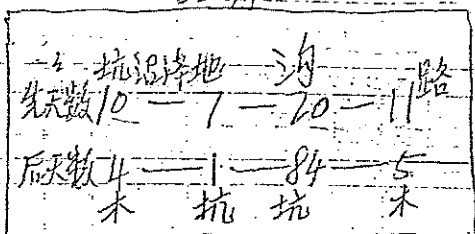 坑沼降地 沟 路
先天数10—7—20—11
后天数4—1—84—5
木 坑 坑 木